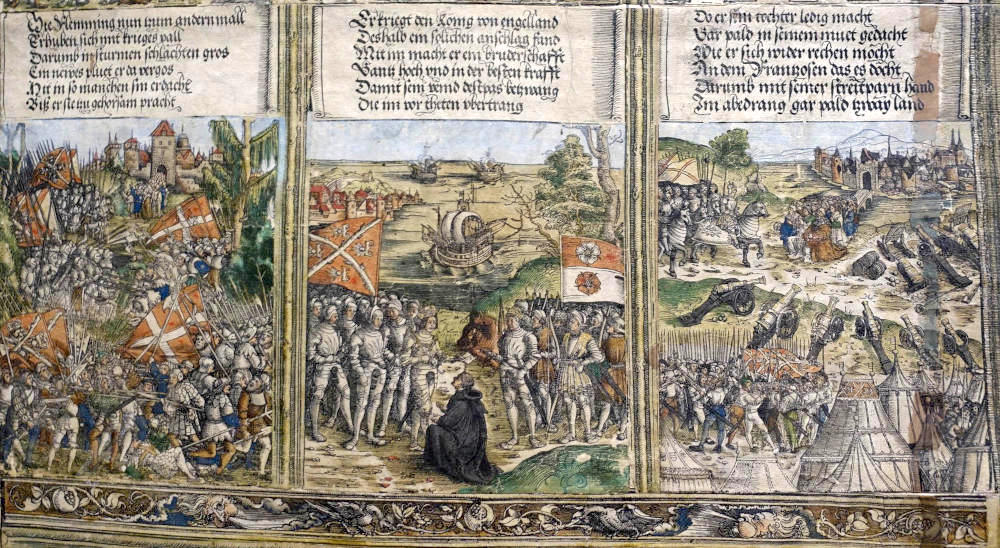 Die Flemming nun tzum andern mall
Erhuben sich mit krieges vall
Darumb in sturmen schlachten gros
Ein newes pluet er da vergos
Mit in so manchen sin erdacht
Biß er sie zu gehorsam pracht
Er kriegt den Konig von engelland
Deshalb ein solichen anschlag fand
Mit im macht er ein bruderschafft
Gantz hoch vnd in der besten krafft
Damit sein veind destpas betzwang
Die im vor theten vbertrang
Do er sein tochter ledig macht
War pald in seinem muet gedacht
Wie er sich wider rechen möcht
An dem Frantzosen das es docht
Darumb mit seiner streitparn hand
Im abedrang gar pald tzway land